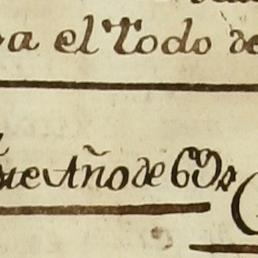 a el Todo de
Año de 69